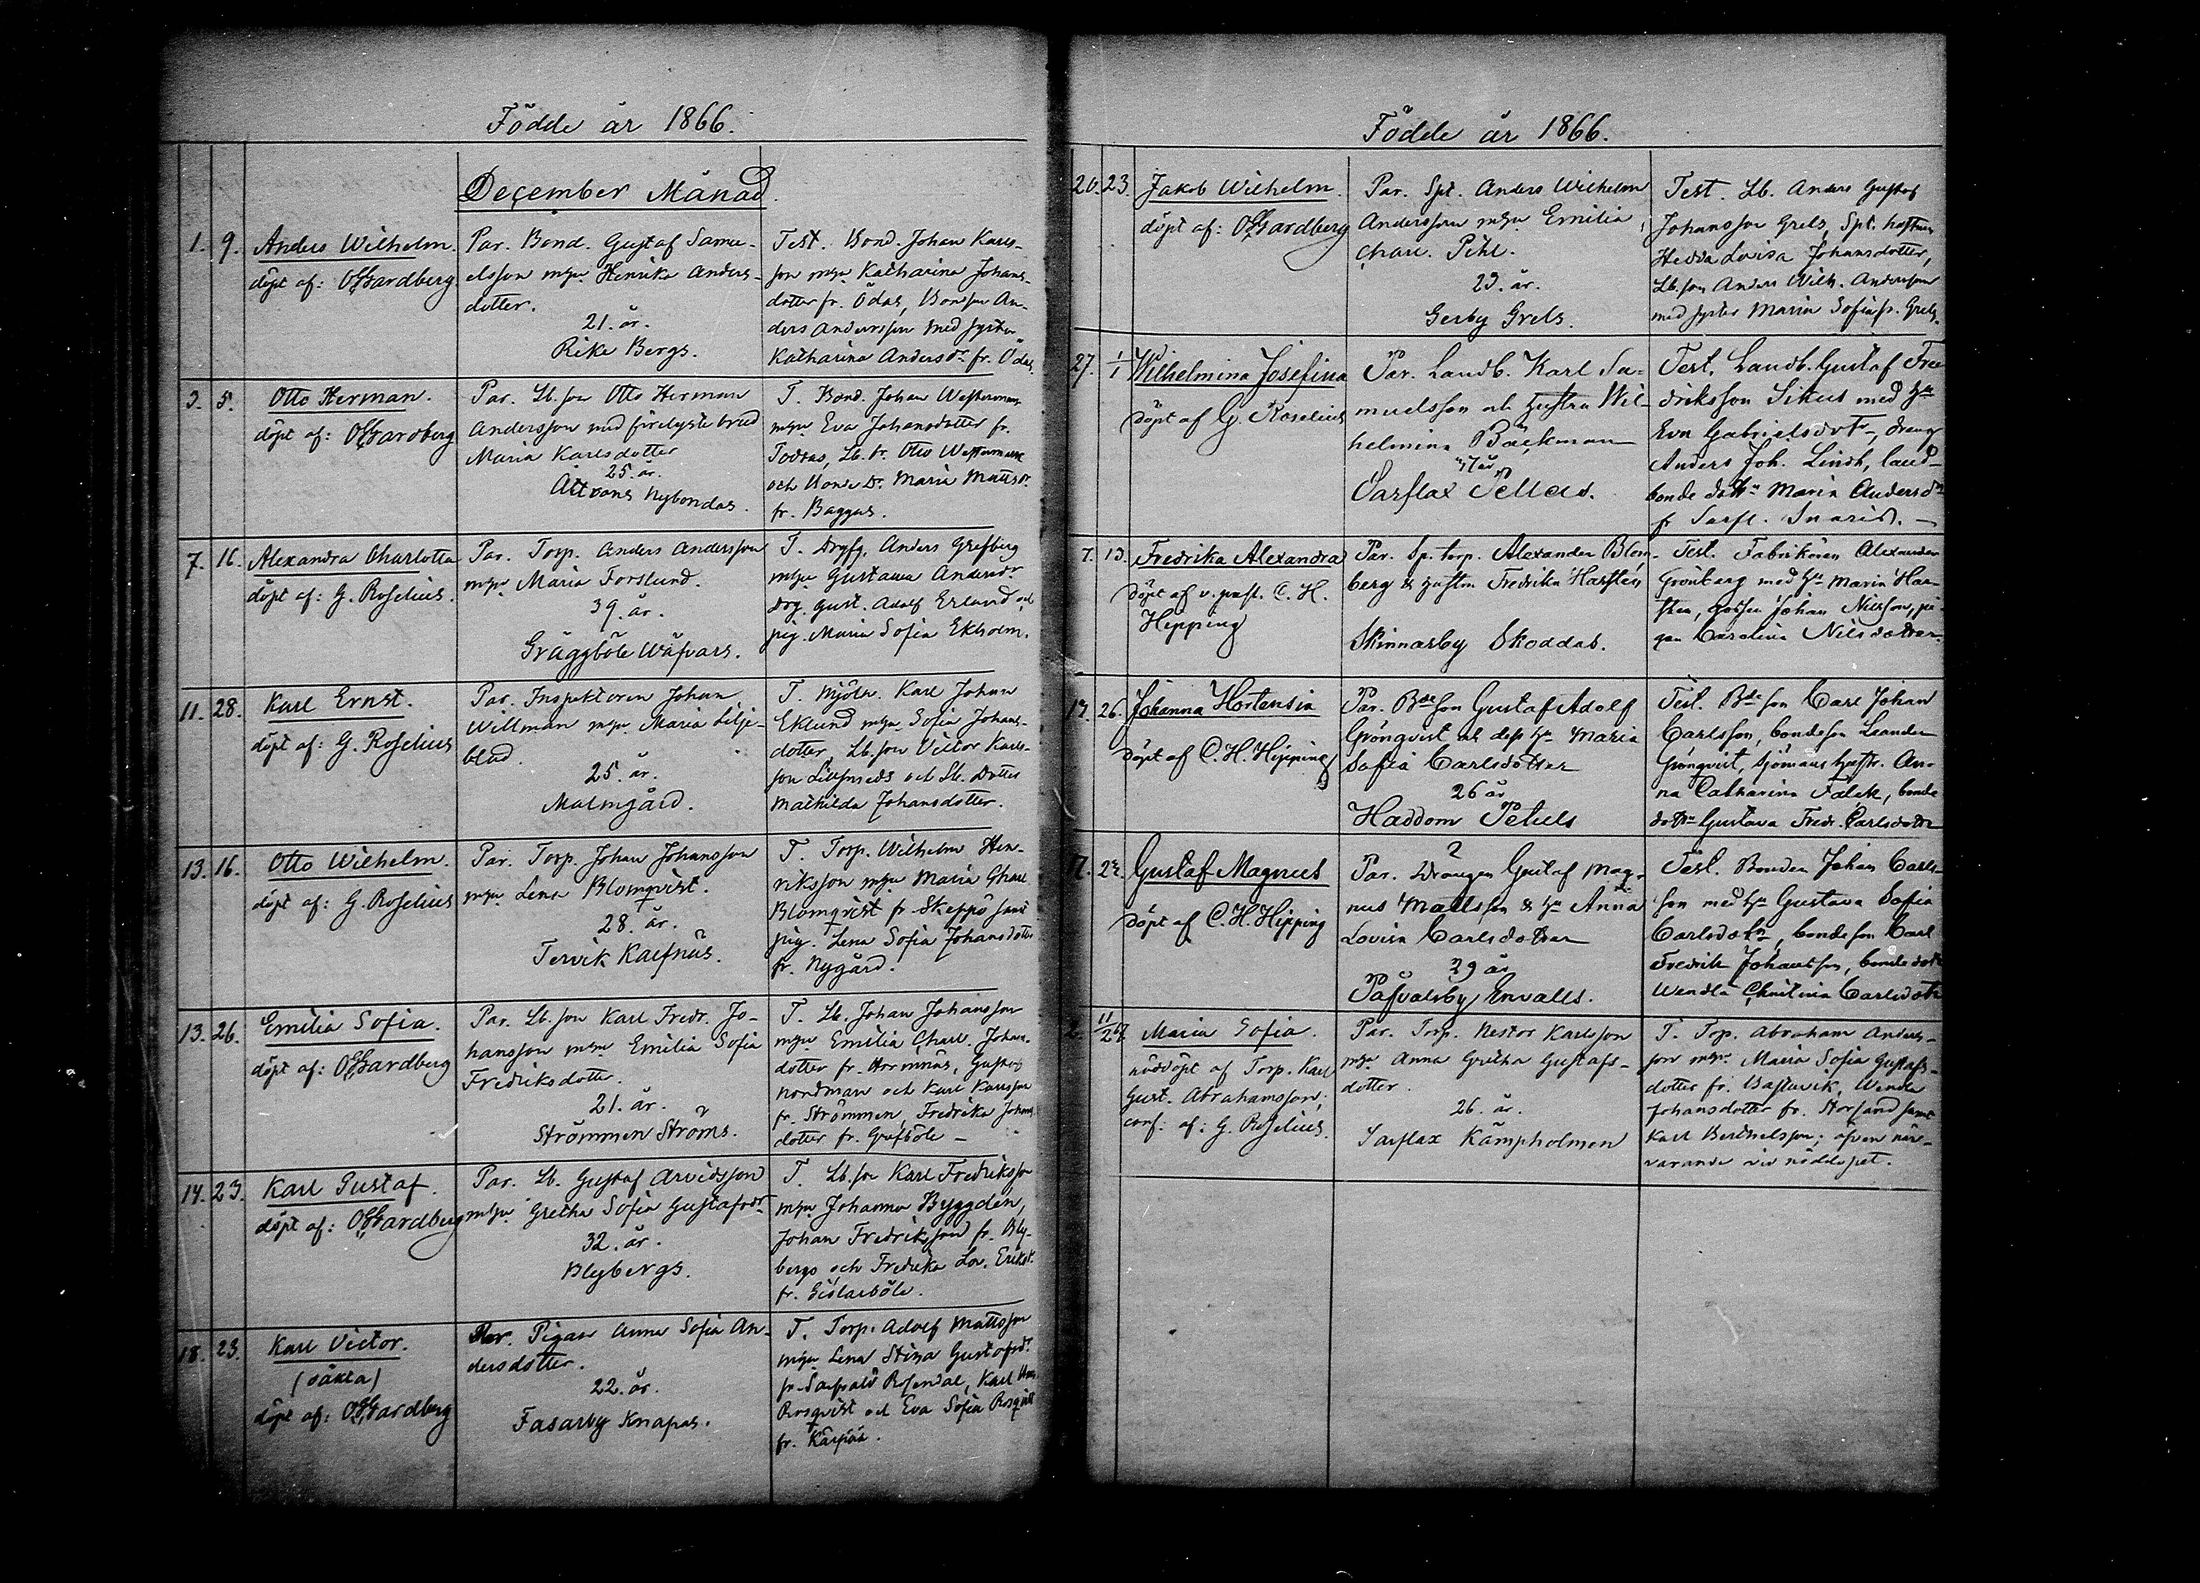 Födde år 1866.
December Månad.
1. 9. Anders Wilhelm.
döpt af: O Gardberg
Par. Bond. Gustaf Samu-
elsson m hu Henrika Anders-
dotter.
21. år.
Rike Bergs.
Test. Bond. Johan Karls-
son m hu Katharina Johans-
dotter fr. Ödas, Bonson An-
ders Andersson med syster
Katharina Andersdr. fr. Ödas.
3. 5. Otto Herman.
döpt af: O Gardberg
Par. Lb. son Otto Herman
Andersson med förelyste brud
Maria Karlsdotter
25. år.
Nybondas.
T. Bond. Johan Westerman
m hu Eva Johansdotter fr.
Lb. Otto Westerman
och Bond Dr. Maria Mattsdr.
fr. Baggas.
7. 16. Alexandra Charlotta
döpt af: G. Roselius.
Par. Torp. Anders Andersson
m hu Maria Forslund.
39. år.
Gräggböle Wäfvars.
T. Anders Grefberg
m hu Gustava Andersdr.
Drg. Gust. Adolf Erlund och
pig. Maria Sofia Ekholm.
11. 28. Karl Ernst.
döpt af: G. Roselius
Par. Inspektoren Johan
Willman m hu Maria Lilje-
blad.
25. år.
Malmgård.
T. Mjöln. Karl Johan
Eklund m hu Sofia Johans-
dotter, Lb. son Victor Karls-
son och Lb. Dotter
Mathilda Johansdotter.
13. 16. Otto Wilhelm.
döpt af: G. Roselius
Par. Torp. Johan Johansson
m hu Lena Blomqvist.
28. år.
Tervik Kalfnäs.
T. Torp. Wilhelm Hen-
riksson m hu Maria Charl.
Blomqvist fr. Skeppö samt
pig. Lena Sofia Johansdotter
fr. Nygård.
13. 26. Emilia Sofia.
döpt af: O Gardberg
Par. Lb. son Karl Fredr. Jo-
hansson m hu Emilia Sofia
Fredriksdotter.
21. år.
Strömmen Ströms.
T. Lb. Johan Johansson
m hu Emilia Charl. Johans-
dotter fr. Hormnäs, Gustaf
Nordman och Karl Karlsson
fr. Strömmen, Fredrika Johans-
dotter fr. Gräfböle –
14. 23. Karl Gustaf.
döpt af: O Gardberg
Par. Lb. Gustaf Arvidsson
m hu Gretha Sofia Gustafsdr.
32. år.
Blybergs.
T. Lb. son Karl Fredriksson
m hu Johanna Byggdén,
Johan Fredriksson fr. Bly-
bergs och Fredrika Lov. Eriksdr.
fr. Gislarböle.
18. 23. Karl Victor.
(oäkta)
döpt af: O Gardberg
Par. Pigan Anna Sofia An-
dersdotter.
22. år.
Fasarby Knapas.
T. Torp. Adolf Mattsson
m hu Lena Stina Gustafsdr.
fr. Rosendal, Karl
Rosqvist och Eva Sofia Rosqvist
fr. Kärpää.
Födde år 1866.
20. 23. Jakob Wilhelm.
döpt af: O Gardberg
Par. Spt. Anders Wilhelm
Andersson m hu Emilia
Charl. Pihl.
23. år.
Gerby Grels.
Test. Lb. Anders Gustaf
Johansson Grels, Spt. hustrun
Hedda Lovisa Johansdotter,
Lb. son Anders Wilh. Andersson
med syster Maria Sofia fr. Grels.
27. 1/1 Wilhelmina Josefina
döpt af G. Roselius
Par. Landb. Karl Sa-
muelsson och hustru Wil-
helmina Bäckman
år
Sarflax Pellas.
Test. Landb. Gustaf Fre-
driksson Sikus med hu
Eva Gabrielsdotr, dreng
Anders Joh. Lindh, land-
bonde dottr Maria Andersdr
fr Sarfl. –
7. 13. Fredrika Alexandra
döpt af v. past. C. H.
Hipping
Par. Sp. torp. Alexander Blom-
berg & hustru Fredrika Harstén
Skinnarby Skoddas.
Test. Fabrikören Alexander
Grönberg med hu Maria Har-
stén, gossen Johan Nilsson, pi-
gan Carolina Nilsdotter.
17. 26. Johanna Hortensia
döpt af C. H. Hipping
Par. Bdeson Gustaf Adolf
Grönqvist och dess hu Maria
Sofia Carlsdotter
26 år
Haddom Pekels
Test. Bde son Carl Johan
Carlsson, bondeson Leander
Grönqvist, sjömans hustr. An-
na Catharina Falck, bonde
dottr Gustava Fredr. Carlsdotter
17. 22. Gustaf Magnus
döpt af C. H. Hipping
?
Par. Drängen Gustaf Mag-
nus Mattsson & hu Anna
Lovisa Carlsdotter
29 år
Påsvalsby Envalls.
Test. Bonden Johan Carls-
son med hu Gustava Sofia
Carlsdotr, bondeson Carl
Fredrik Johansson, bondedotr
Wendla Christina Carlsdotr
11/29 Maria Sofia.
nöddöpt af Torp. Karl
Gust. Abrahamsson;
conf. af: G. Roselius.
Par. Torp. Nestor Karlsson
m hu Anna Gretha Gustafs-
dotter.
26. år.
Sarflax Kämpholmen
T. Torp. Abraham Anders-
son m hu Maria Sofia Gustafs-
dotter fr. Bastuvik, Wendla
Johansdotter fr. Storsand samt
Karl Berthelsson; äfven när-
varande vid nöddopet.